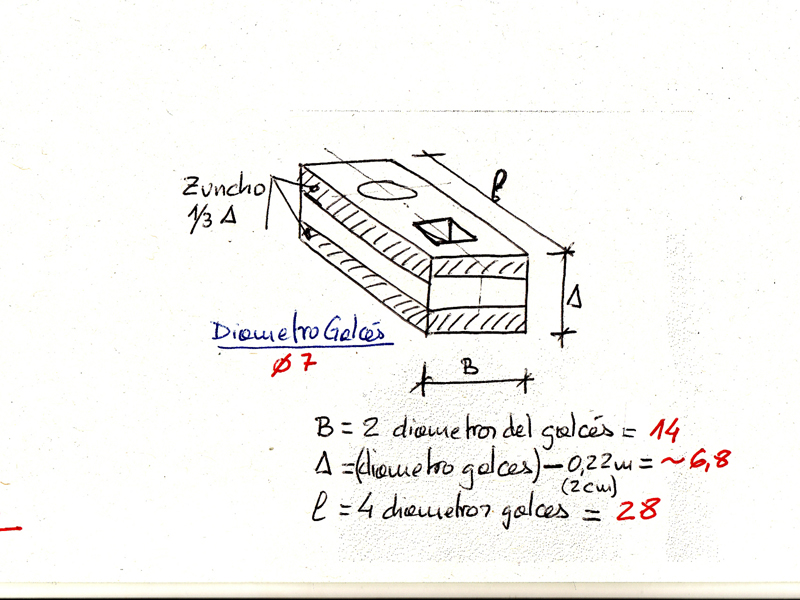 Zuncho
1/3 Δ
l
Δ
Diametro Galcés
ø 7
B
B = 2 diametros del galcés = 14
Δ = (diametro galces) - 0,22m = ~ 6,8
(2cm)
l = 4 diametros galces = 28